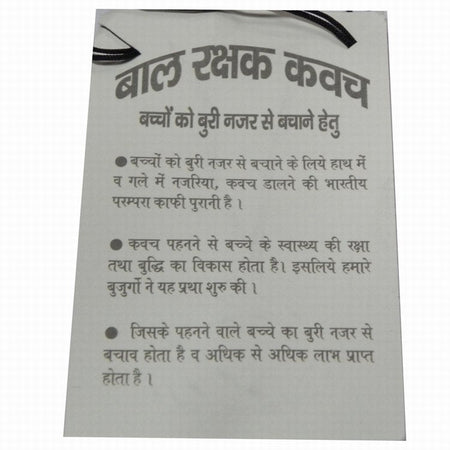 बाल रक्षक कवच
बच्चों को बुरी नजर से बचाने हेतु
● बच्चों को बुरी नजर से बचाने के लिये हाथ में
व गले में नजरिया, कवच डालने की भारतीय
परम्परा काफी पुरानी है ।
● कवच पहनने से बच्चे के स्वास्थ्य की रक्षा
तथा बुद्धि का विकास होता है। इसलिये हमारे
बुजुर्गो ने यह प्रथा शुरु की ।
● जिसके पहनने वाले बच्चे का बुरी नजर से
बचाव होता है व अधिक से अधिक लाभ प्राप्त
होता है ।